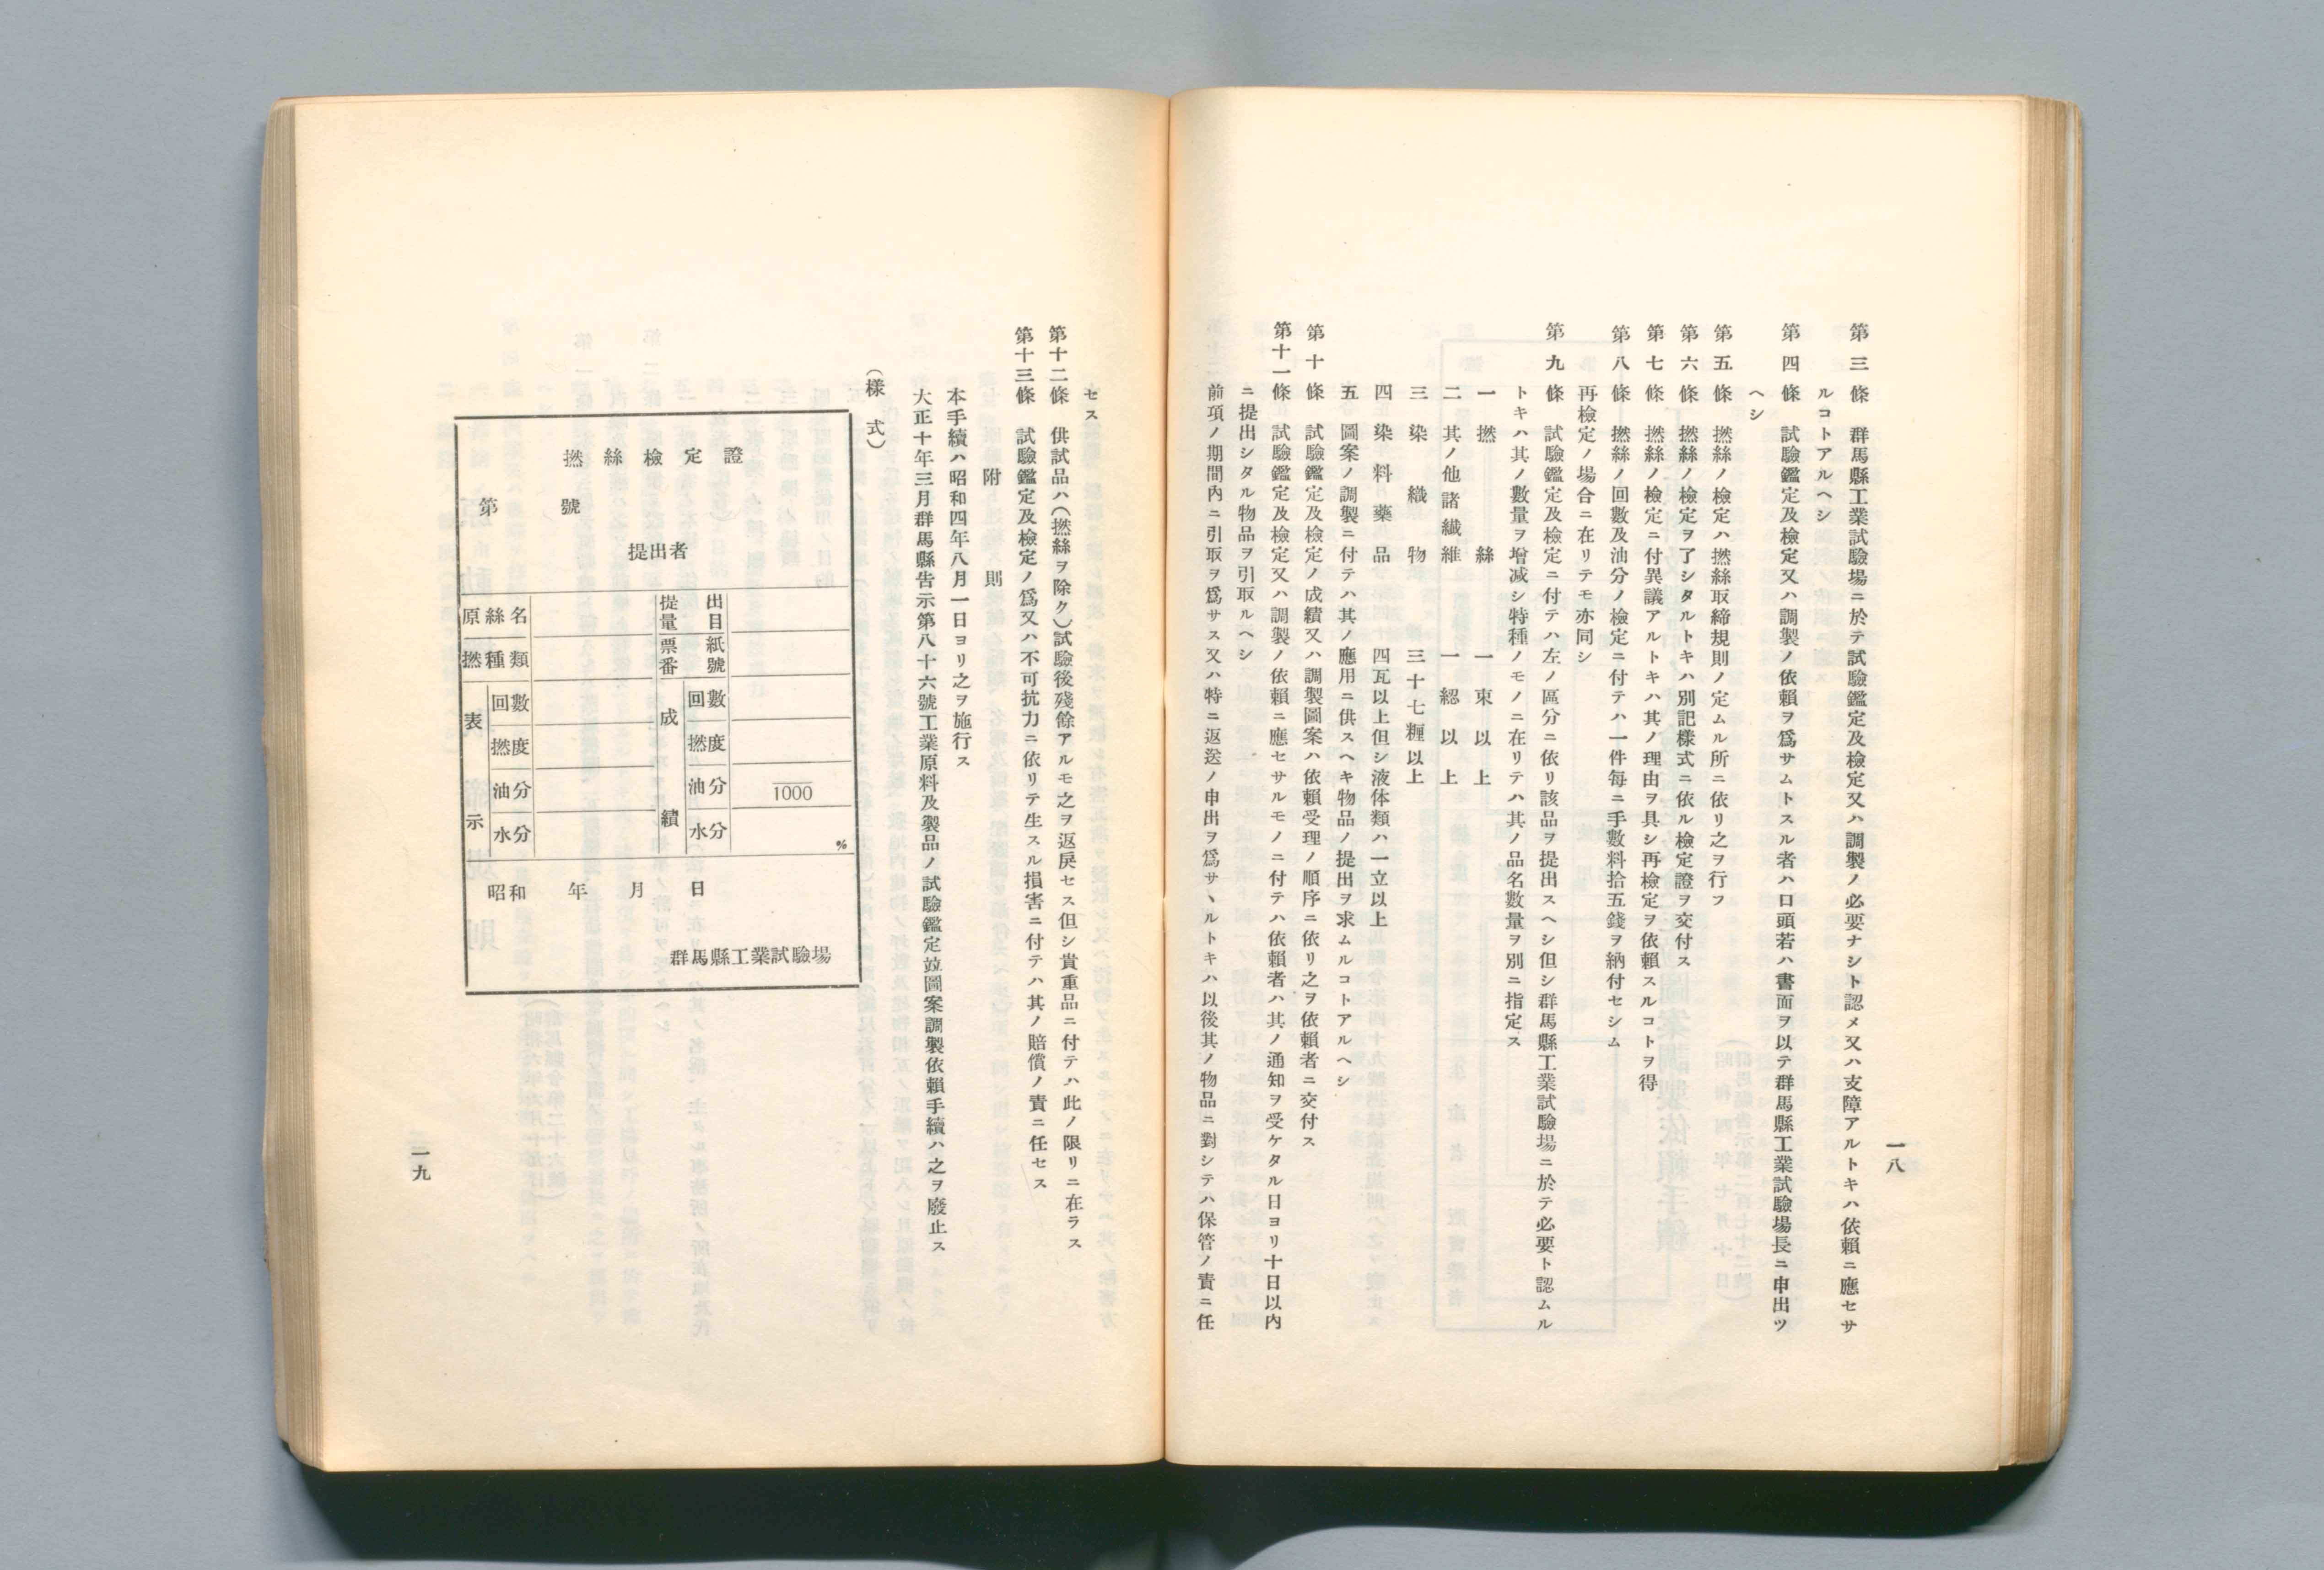 一八
第三條　群馬縣工業試驗場ニ於テ試驗鑑定及檢定又ハ調製ノ必要ナシト認メ又ハ支障アルトキハ依賴ニ應セサ
ルコトアルヘシ
第四條　試驗鑑定及檢定又ハ調製ノ依賴ヲ爲サムトスル者ハ口頭若ハ書面ヲ以テ群馬縣工業試驗場長ニ申出ツ
ヘシ
第五條　撚絲ノ檢定ハ撚絲取締規則ノ定ムル所ニ依リ之ヲ行フ
第六條　撚絲ノ檢定ヲ了シタルトキハ別記樣式ニ依ル檢定證ヲ交付ス
第七條　撚絲ノ檢定ニ付異議アルトキハ其ノ理由ヲ具シ再檢定ヲ依賴スルコトヲ得
第八條　撚絲ノ回數及油分ノ檢定ニ付テハ一件每ニ手數料拾五錢ヲ納付セシム
再檢定ノ場合ニ在リテモ亦同シ
第九條　試驗鑑定及檢定ニ付テハ左ノ區分ニ依リ該品ヲ提出スヘシ但シ群馬縣工業試驗場ニ於テ必要ト認ムル
トキハ其ノ數量ヲ增減シ特種ノモノニ在リテハ其ノ品名數量ヲ別ニ指定ス
一　撚絲　一束以上
二　其ノ他諸纖維　一綛以上
三　染織物　三十七糎以上
四　染料藥品　四瓦以上但シ液体類ハ一立以上
五　圖案ノ調製ニ付テハ其ノ應用ニ供スヘキ物品ノ提出ヲ求ムルコトアルヘシ
第十條　試驗鑑定及檢定ノ成績又ハ調製圖案ハ依賴受理ノ順序ニ依リ之ヲ依賴者ニ交付ス
第十一條　試驗鑑定及檢定又ハ調製ノ依賴ニ應セサルモノニ付テハ依賴者ハ其ノ通知ヲ受ケタル日ヨリ十日以內
ニ提出シタル物品ヲ引取ルヘシ
前項ノ期間內ニ引取ヲ爲サス又ハ特ニ返送ノ申出ヲ爲サヽルトキハ以後其ノ物品ニ對シテハ保管ノ責ニ任
セス
第十二條　供試品ハ(撚絲ヲ除ク)試驗後殘餘アルモ之ヲ返戾セス但シ貴重品ニ付テハ此ノ限リニ在ラス
第十三條　試驗鑑定及檢定ノ爲又ハ不可抗力ニ依リテ生スル損害ニ付テハ其ノ賠償ノ責ニ任セス
附則
本手續ハ昭和四年八月一日ヨリ之ヲ施行ス
大正十年三月群馬縣告示第八十六號工業原料及製品ノ試驗鑑定竝圖案調製依賴手續ハ之ヲ廢止ス
(樣式)
撚絲檢定證
第　號
提出者
原絲名　提出量目
撚種類　票紙番號
表示　回數　成績　回數
撚度　撚度
油分　油分　1000
水分　水分　%
昭和　年　月　日
群馬縣工業試驗場
一九